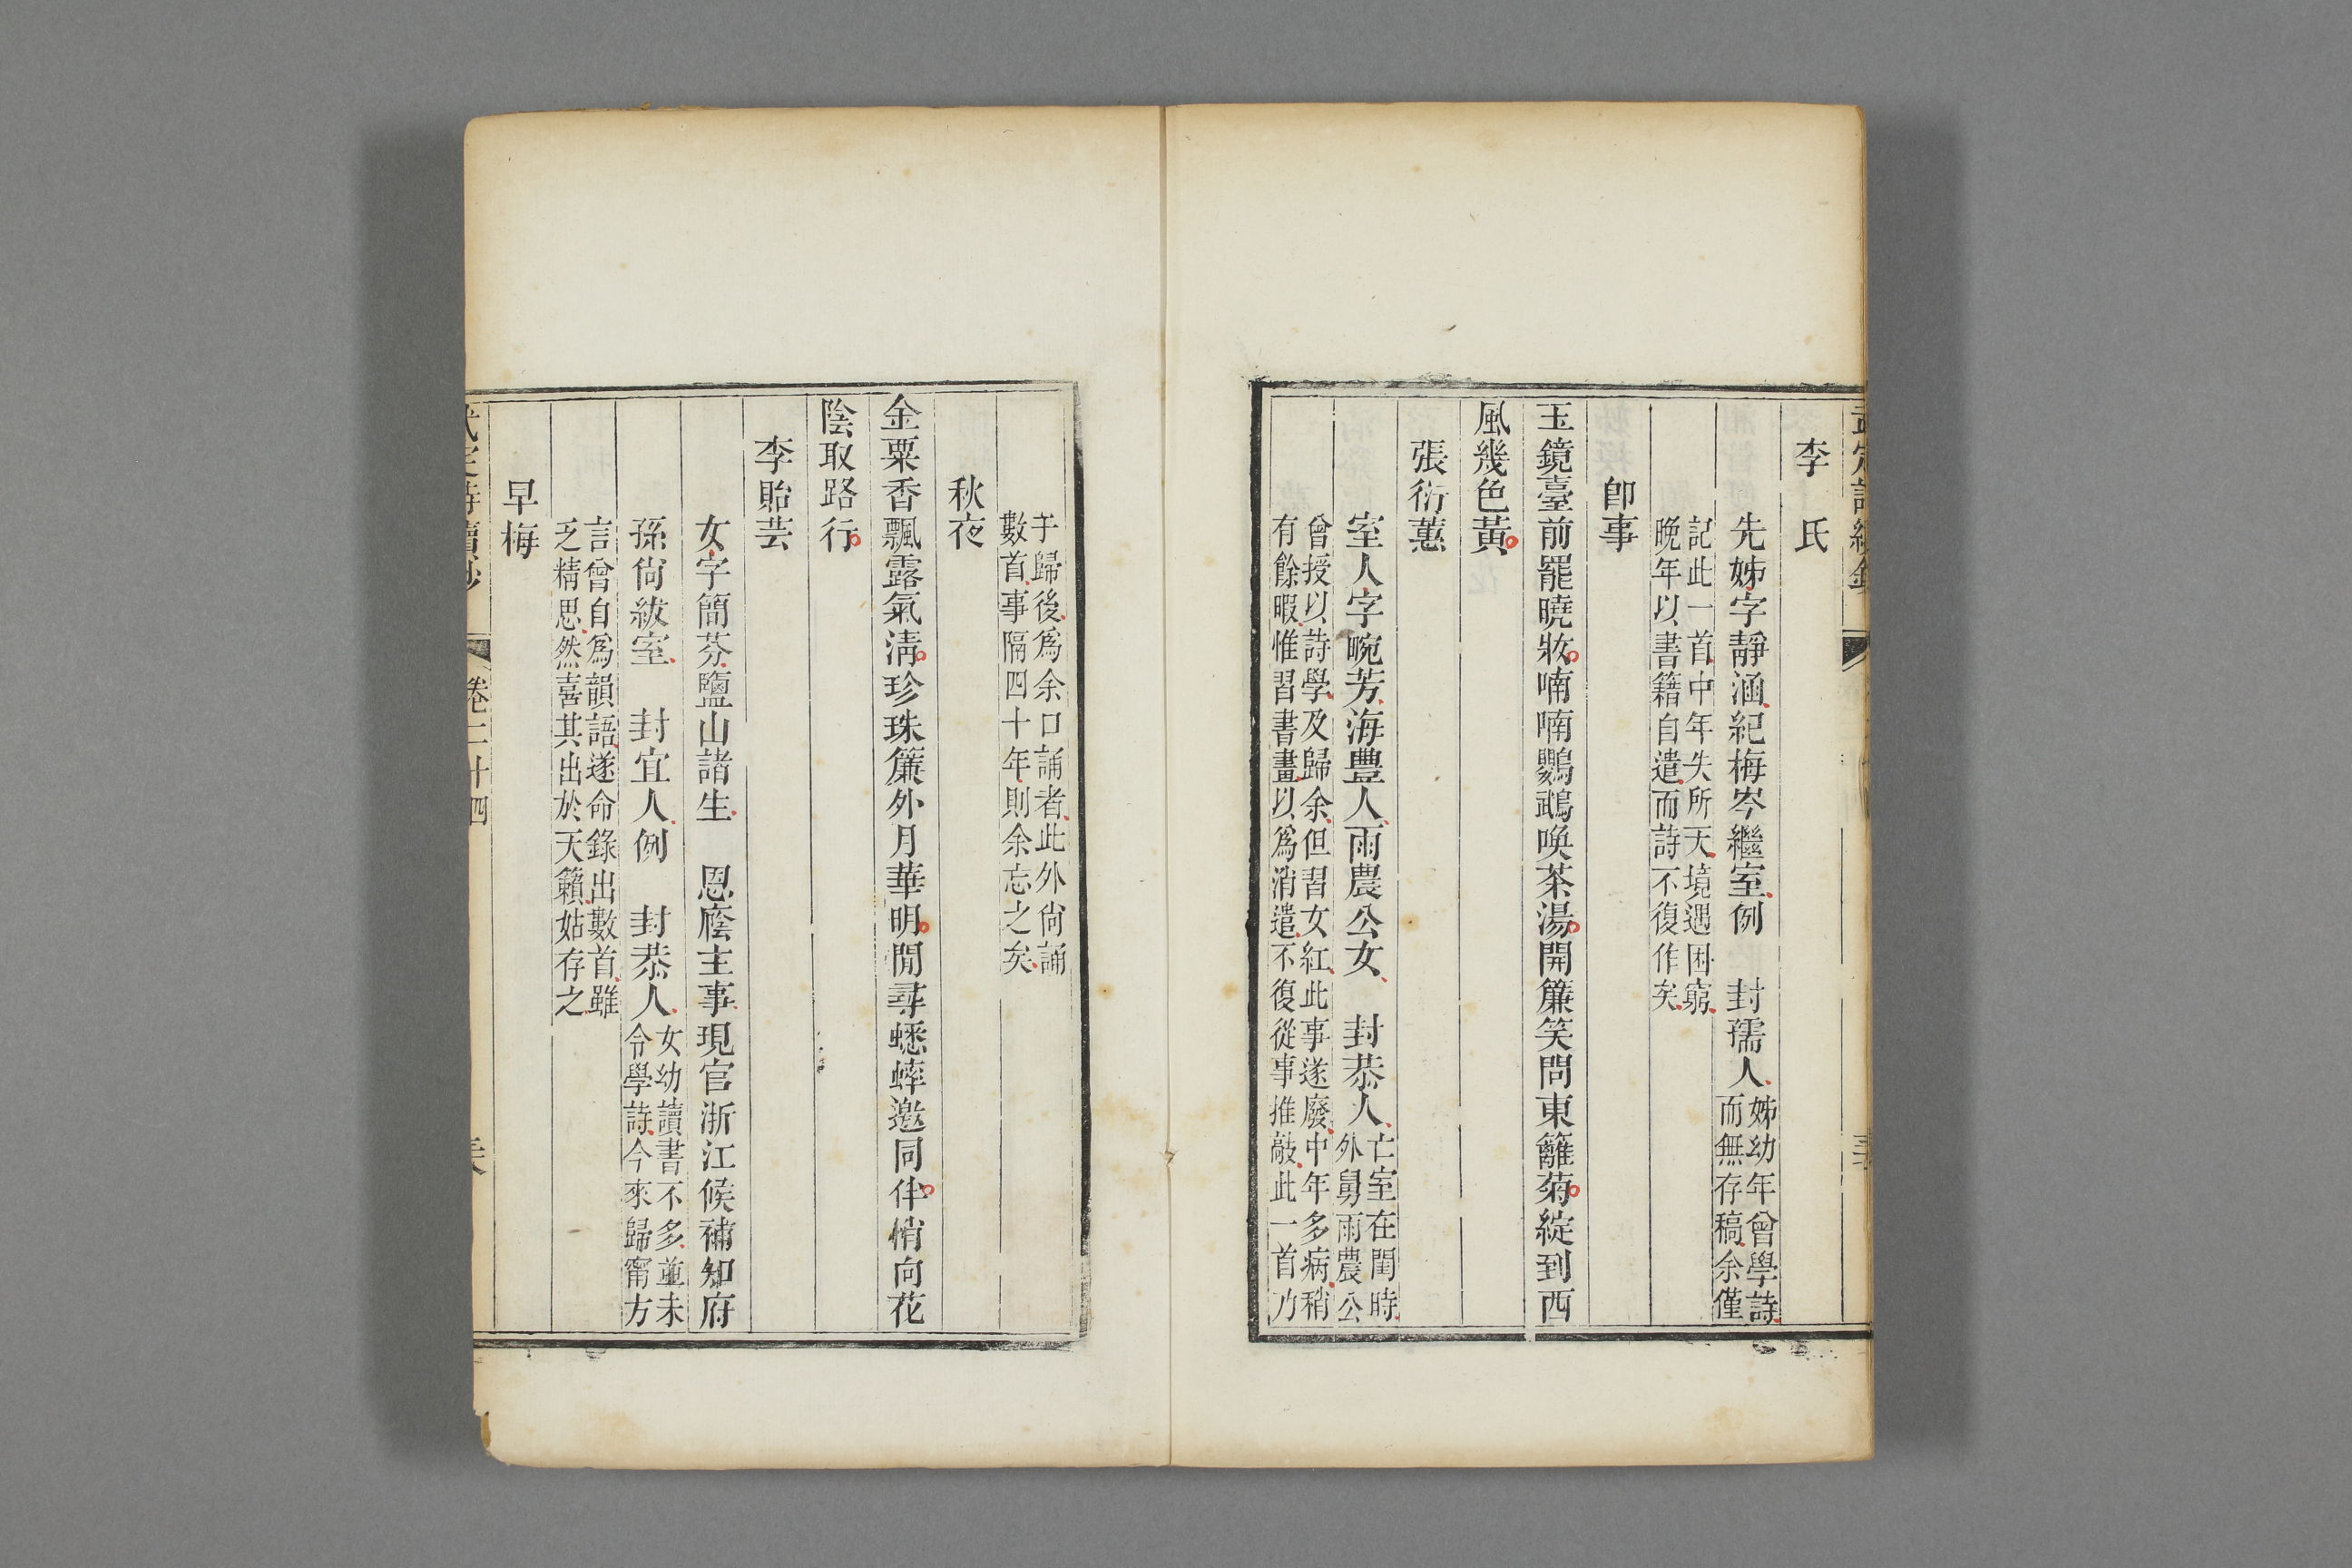 李　氏
先姊字靜涵紀梅岑繼室例　封孺人姊幼年曾學詩
而無存稿余僅
記此一首中年失所天境遇困窮
晚年以書籍自遣而詩不復作矣
卽事
玉鏡臺前罷曉妝喃喃鸚鵡喚茶湯開簾笑問東籬菊綻到西
風幾色黃
張衍蕙
室人字畹芳海豐人雨農公女　封恭人亡室在閨時
外舅雨農公
曾授以詩學及歸余但習女紅此事遂廢中年多病稍
有餘暇惟習書畫以爲消遣不復從事推敲此一首乃
于歸後爲余口誦者此外尙誦
數首事隔四十年則余忘之矣
秋夜
金粟香飄露氣淸珍珠簾外月華明閒尋蟋蟀邀同伴悄向花
陰取路行
李貽芸
女字簡芬鹽山諸生　恩廕主事現官浙江候補知府
孫尙紱室　封宜人例　封恭人女幼讀書不多並未
令學詩今來歸甯方
言曾自爲韻語遂命錄出數首雖
乏精思然喜其出於天籟姑存之
早梅
卷二十四